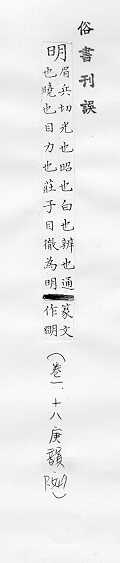 俗書刊誤
明
眉兵切光也昭也白也辨也通
也曉也目力也莊子目徹為明
篆文
作朙
(卷一、十八庚韻